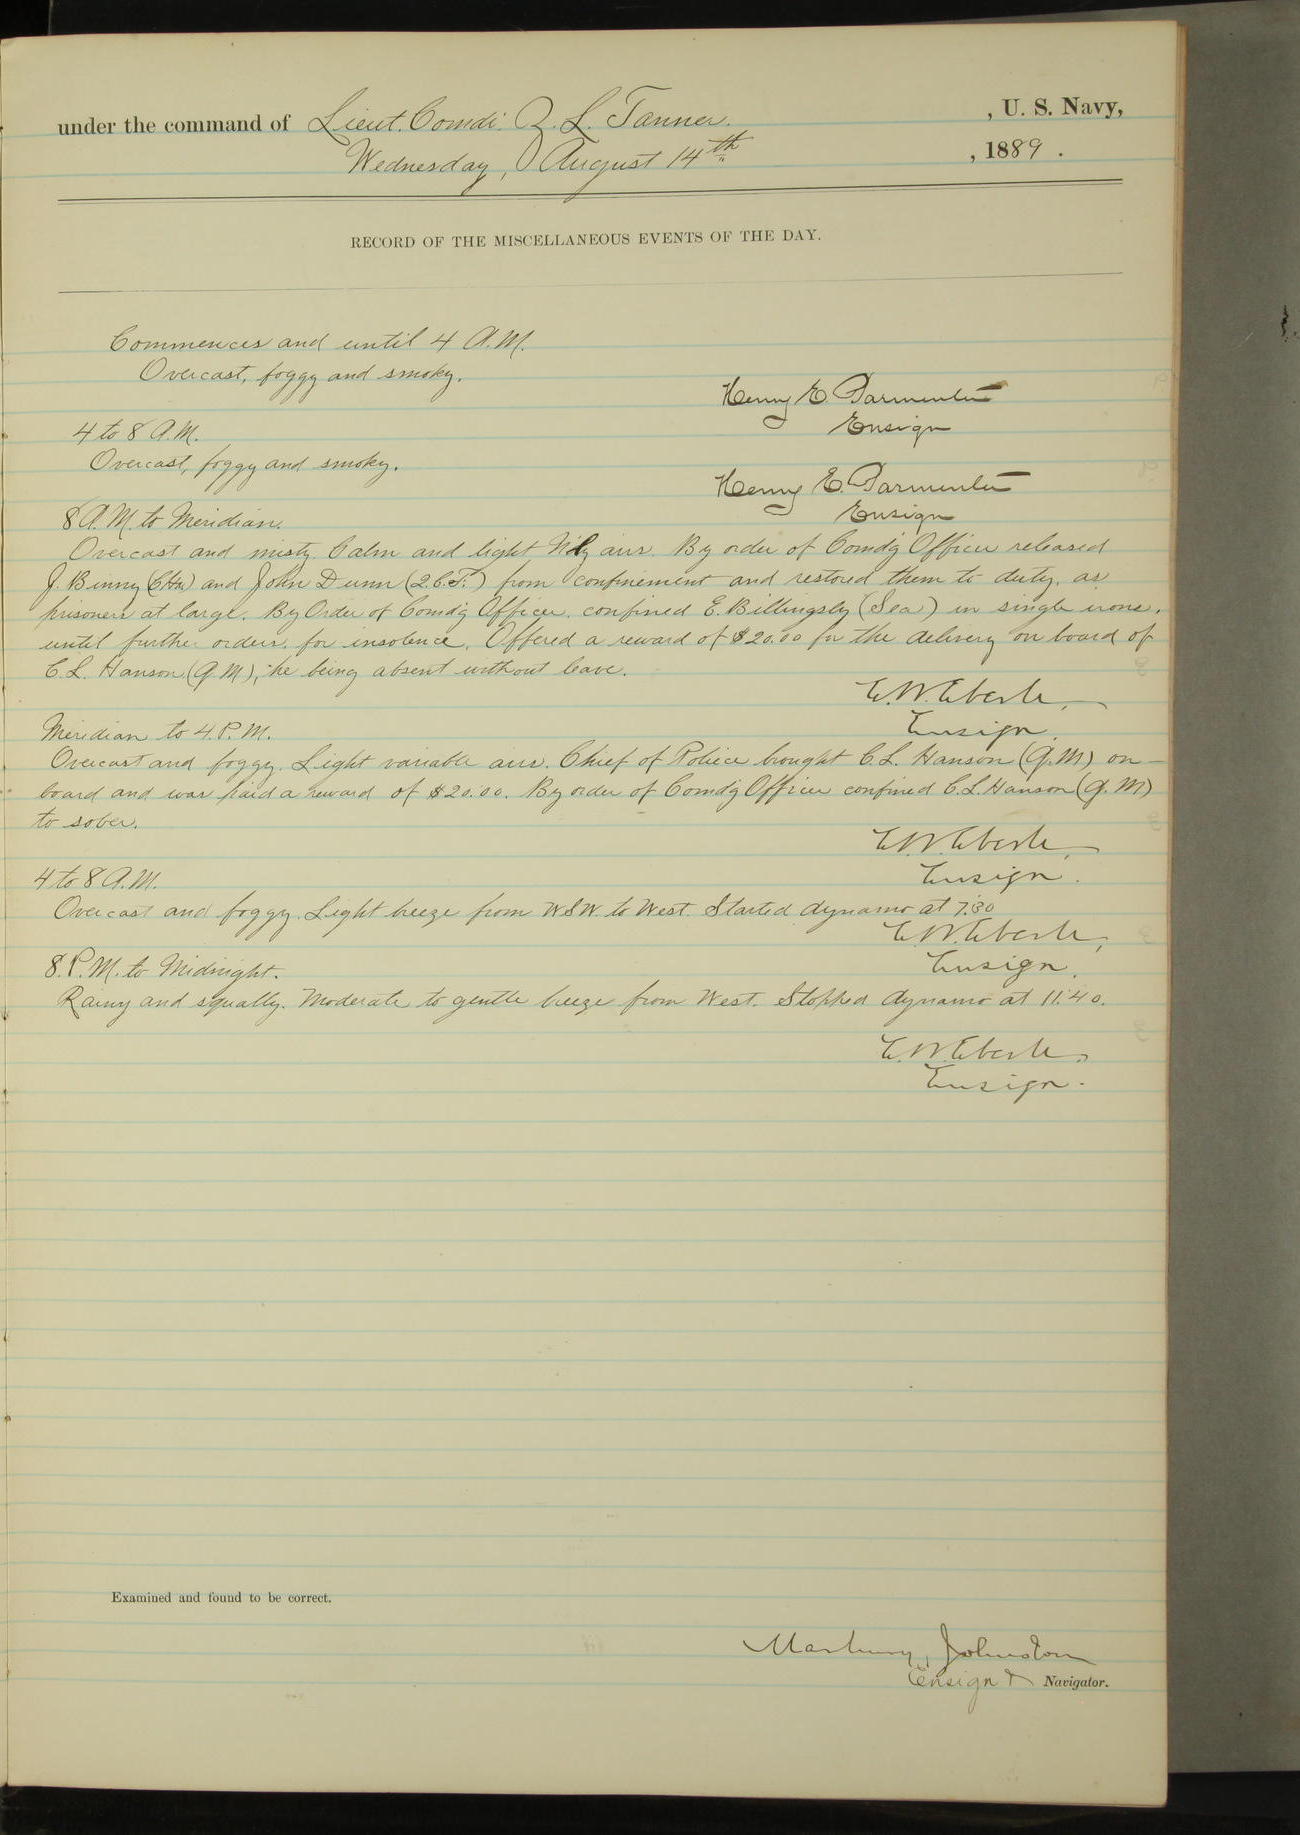 under the command of Lieut. Comdr. Z. L. Tanner. , U. S. Navy,
Wednesday, August 14th , 1889 .
RECORD OF THE MISCELLANEOUS EVENTS OF THE DAY.
Commences and until 4 A.M.
Overcast, foggy and smoky.
Henry E. Parmenter
Ensign
4 to 8 A.M.
Overcast, foggy and smoky.
Henry E. Parmenter
Ensign
8 A.M. to Meridian.
Overcast and misty. Calm and light N'ly airs. By order of Comd'g Officer released
J. Binny (CHn) and John Dunn (2.C.F.) from confinement and restored them to duty, as
prisoners at large. By Order of Comd'g Officer, confined E. Billingsly (Sea) in single irons,
until further orders, for insolence. Offered a reward of $20.00 for the delivery on board of
C.L. Hanson (G.M), he being absent without leave.
E.W. Eberle,
Ensign.
Meridian to 4. P.M.
Overcast and foggy. Light variable airs. Chief of Police brought C.L. Hanson (G.M) on-
board and was paid a reward of $20.00. By order of Comdg Officer confined C.L. Hanson (G.M)
to sober.
E.W. Eberle,
Ensign.
4 to 8 A.M.
Overcast and foggy. Light breeze from WSW. to West. Started dynamo at 7.30
E.W. Eberle,
Ensign.
8. P.M. to Midnight.
Rainy and squally. Moderate to gentle breeze from West. Stopped dynamo at 11:40.
E.W. Eberle,
Ensign.
Examined and found to be correct.
Marbury Johnston
Ensign & Navigator.